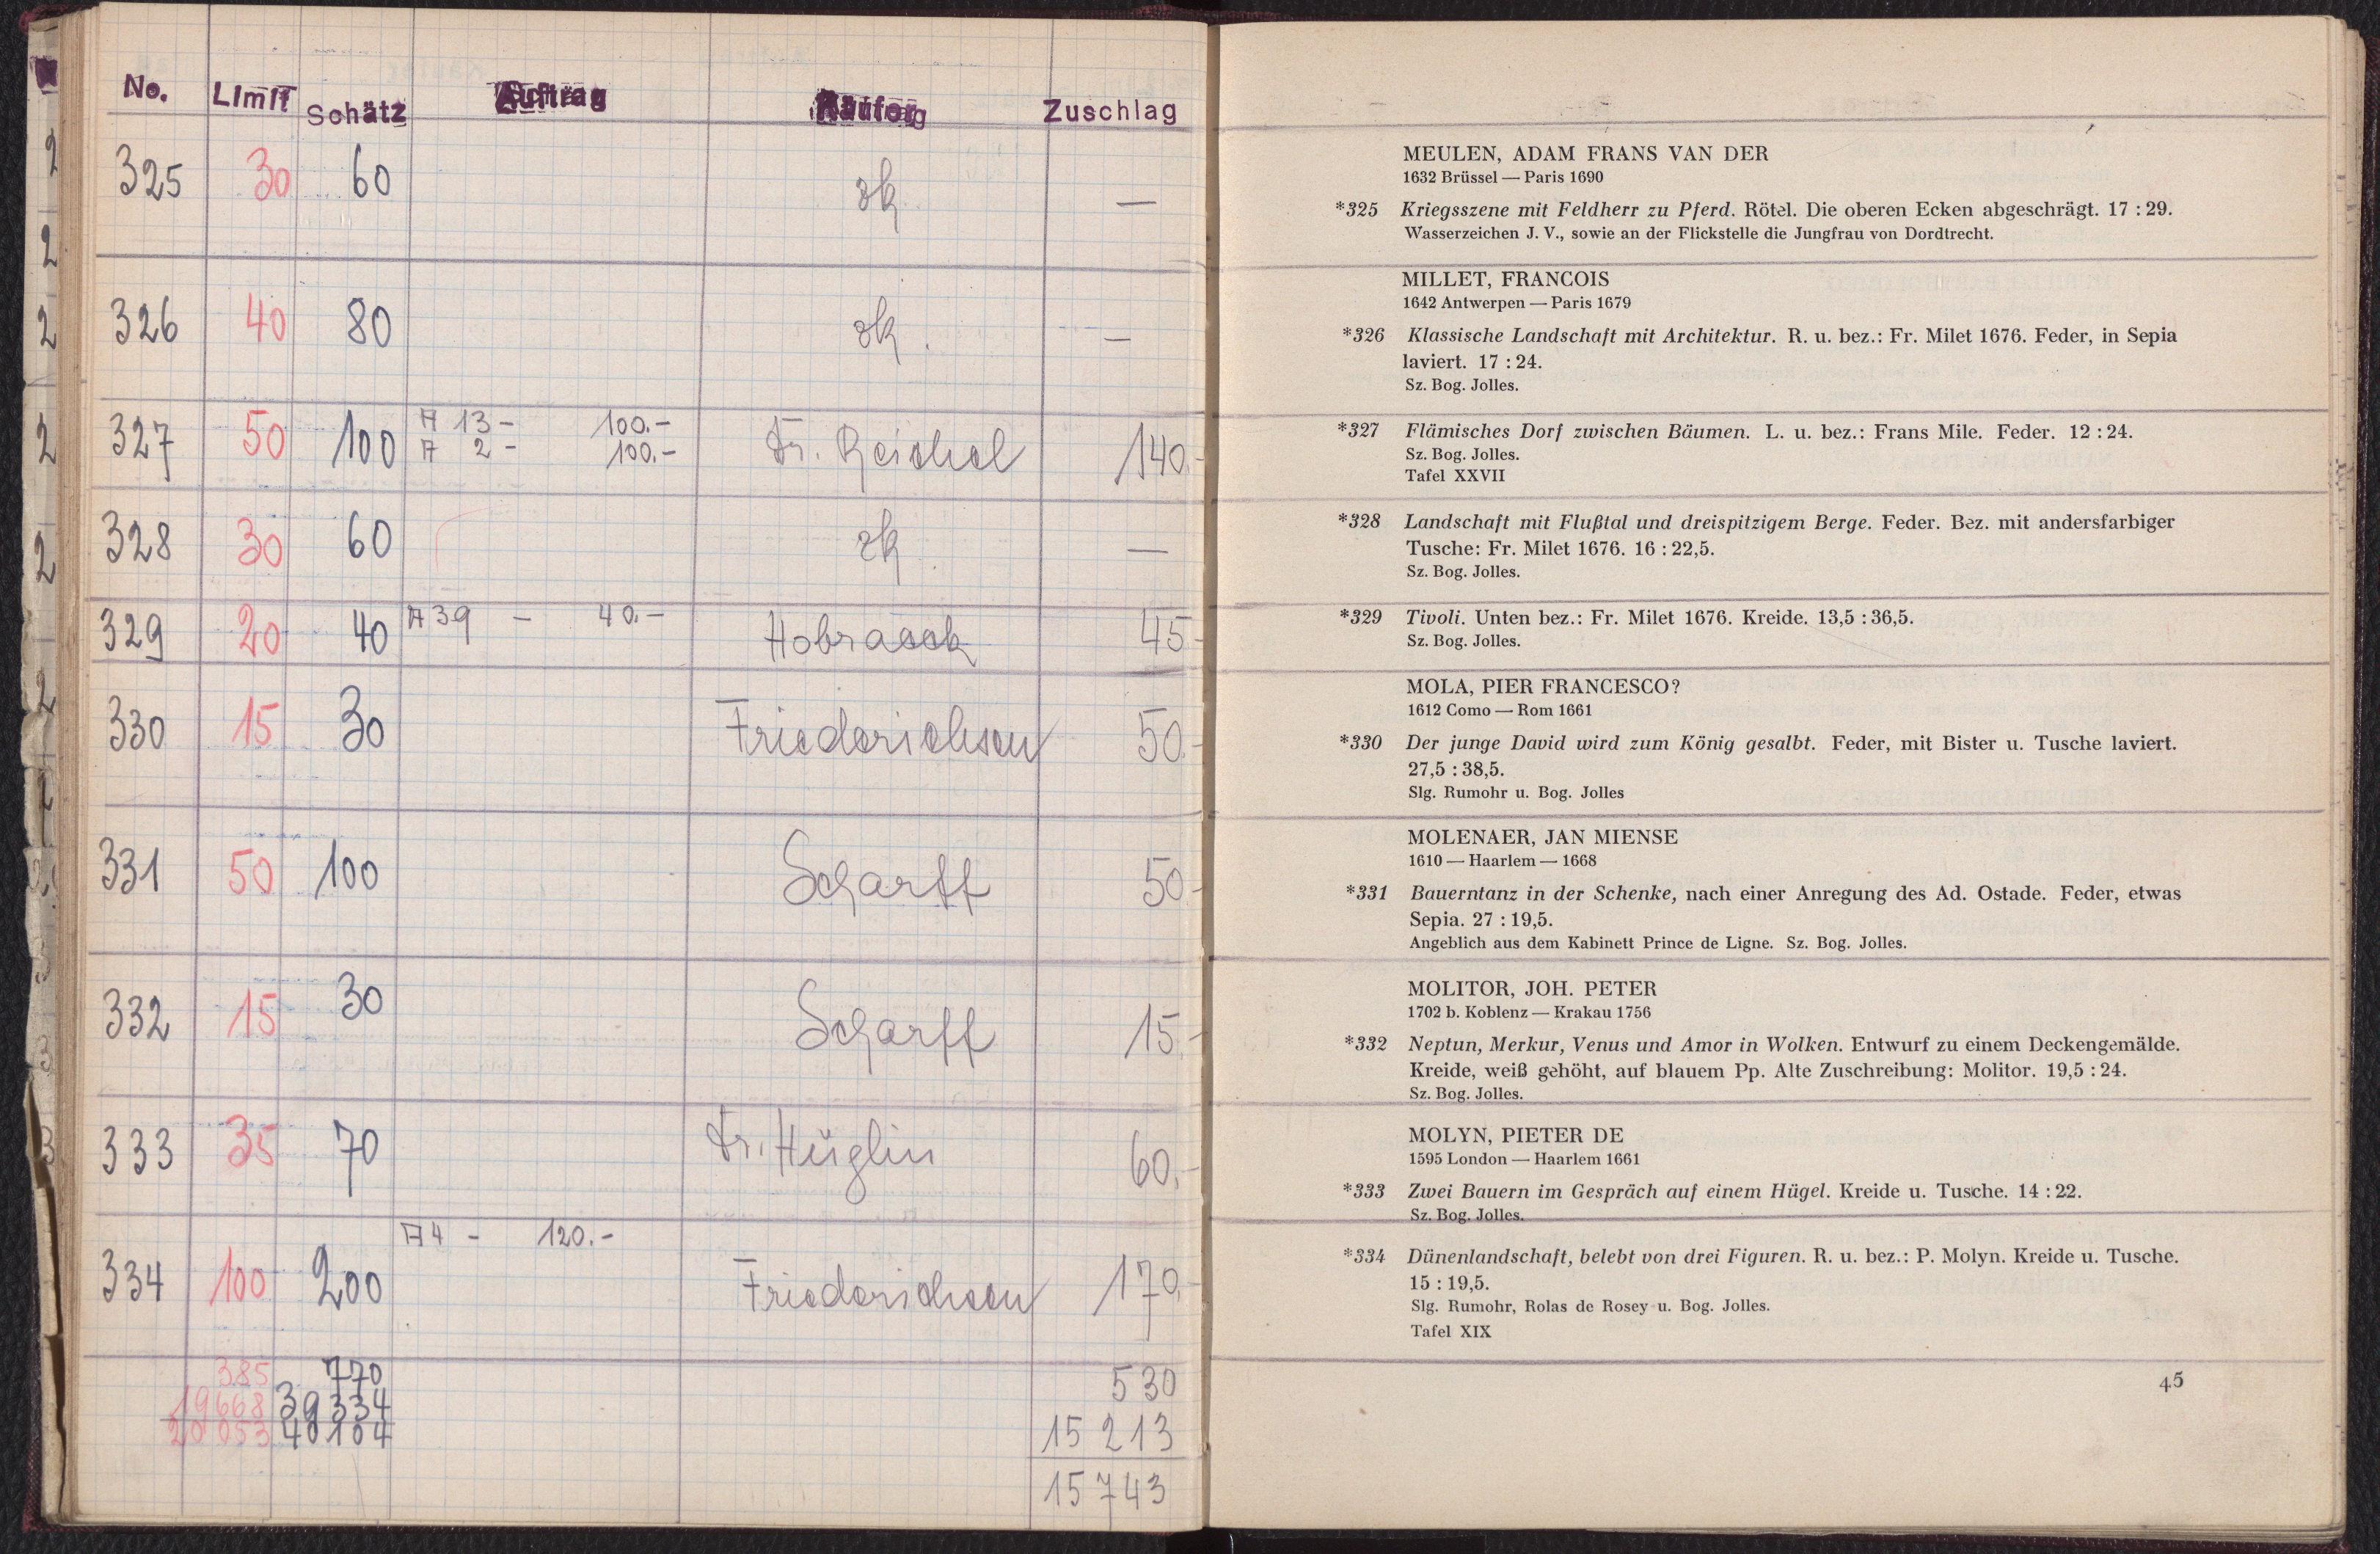 No. Limit Schätz Auftrag Käufer Zuschlag
325 30 60 zk —
326 40 80 zk. —
327 50 100 A 13 - 100.- Dr. Reichel 140.-
A 2 - 100.-
328 30 60 zk. —
329 20 40 A 39 - 40.- Hobraack 45.-
330 15 30 Friederichsen 50.-
331 50 100 Scharff 50.-
332 15 30 Scharff 15.-
333 35 70 Dr. Hüglin 60.-
A 4 - 120.-
334 100 200 Friederichsen 170.-
385 770 530
19668 39334 15213
20053 40104 15743
MEULEN, ADAM FRANS VAN DER
1632 Brüssel — Paris 1690
*325 Kriegsszene mit Feldherr zu Pferd. Rötel. Die oberen Ecken abgeschrägt. 17 : 29.
Wasserzeichen J. V., sowie an der Flickstelle die Jungfrau von Dordtrecht.
MILLET, FRANCOIS
1642 Antwerpen — Paris 1679
*326 Klassische Landschaft mit Architektur. R. u. bez.: Fr. Milet 1676. Feder, in Sepia
laviert. 17 : 24.
Sz. Bog. Jolles.
*327 Flämisches Dorf zwischen Bäumen. L. u. bez.: Frans Mile. Feder. 12 : 24.
Sz. Bog. Jolles.
Tafel XXVII
*328 Landschaft mit Flußtal und dreispitzigem Berge. Feder. Bez. mit andersfarbiger
Tusche: Fr. Milet 1676. 16 : 22,5.
Sz. Bog. Jolles.
*329 Tivoli. Unten bez.: Fr. Milet 1676. Kreide. 13,5 : 36,5.
Sz. Bog. Jolles.
MOLA, PIER FRANCESCO?
1612 Como — Rom 1661
*330 Der junge David wird zum König gesalbt. Feder, mit Bister u. Tusche laviert.
27,5 : 38,5.
Slg. Rumohr u. Bog. Jolles
MOLENAER, JAN MIENSE
1610 — Haarlem — 1668
*331 Bauerntanz in der Schenke, nach einer Anregung des Ad. Ostade. Feder, etwas
Sepia. 27 : 19,5.
Angeblich aus dem Kabinett Prince de Ligne. Sz. Bog. Jolles.
MOLITOR, JOH. PETER
1702 b. Koblenz — Krakau 1756
*332 Neptun, Merkur, Venus und Amor in Wolken. Entwurf zu einem Deckengemälde.
Kreide, weiß gehöht, auf blauem Pp. Alte Zuschreibung: Molitor. 19,5 : 24.
Sz. Bog. Jolles.
MOLYN, PIETER DE
1595 London — Haarlem 1661
*333 Zwei Bauern im Gespräch auf einem Hügel. Kreide u. Tusche. 14 : 22.
Sz. Bog. Jolles.
*334 Dünenlandschaft, belebt von drei Figuren. R. u. bez.: P. Molyn. Kreide u. Tusche.
15 : 19,5.
Slg. Rumohr, Rolas de Rosey u. Bog. Jolles.
Tafel XIX
45